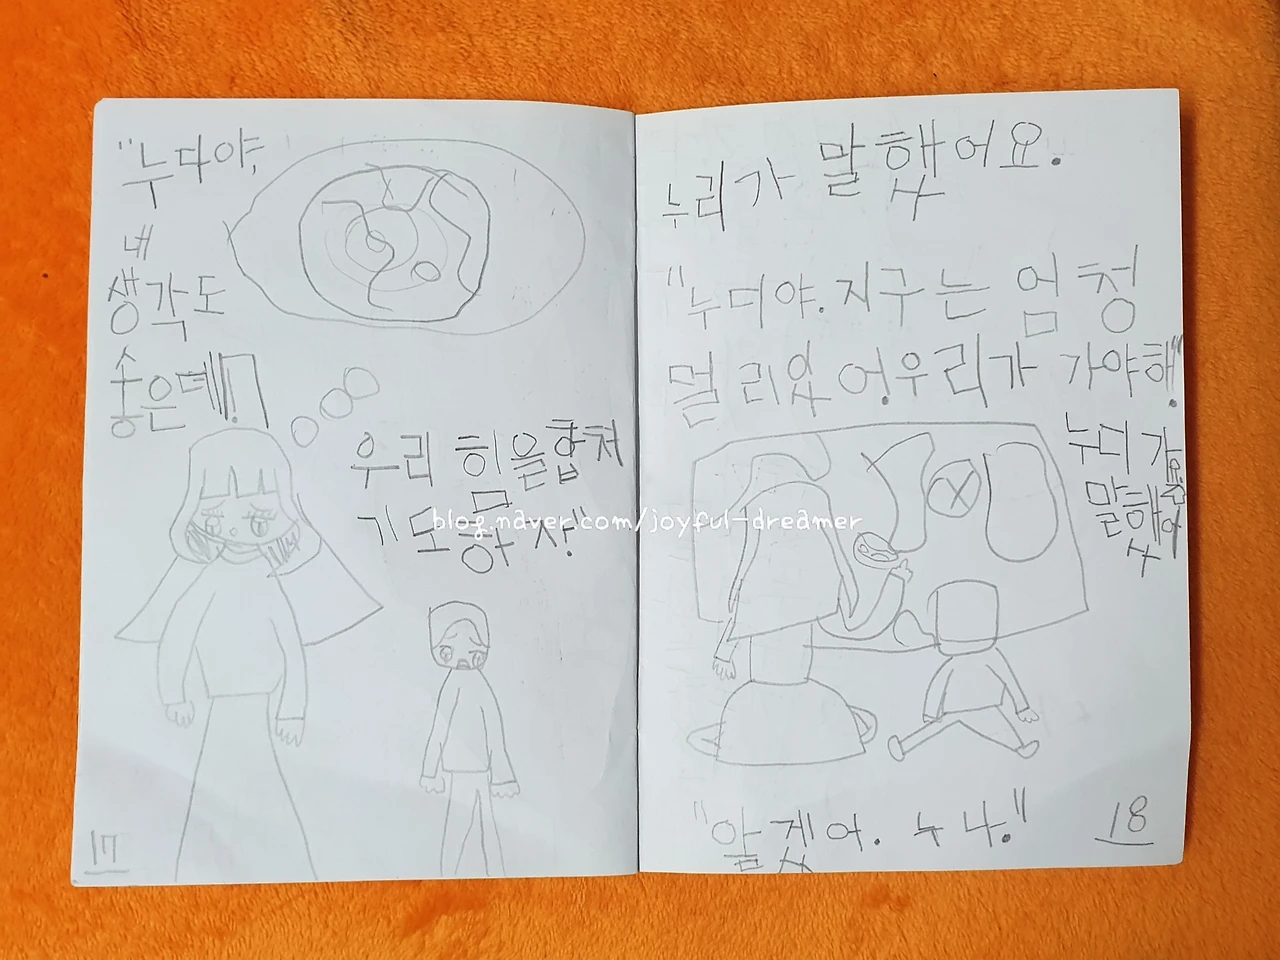 "누다야,
내
생각도
송은데!
우리 힘을합쳐
기도하자."
17
누리가 말했어요.
"누디야. 지구는 엄청
멀리있어.우리가 가야해."
누디가
말했어요
"알겠어. 누나."
18
blog.naver.com/joyful-dreamer